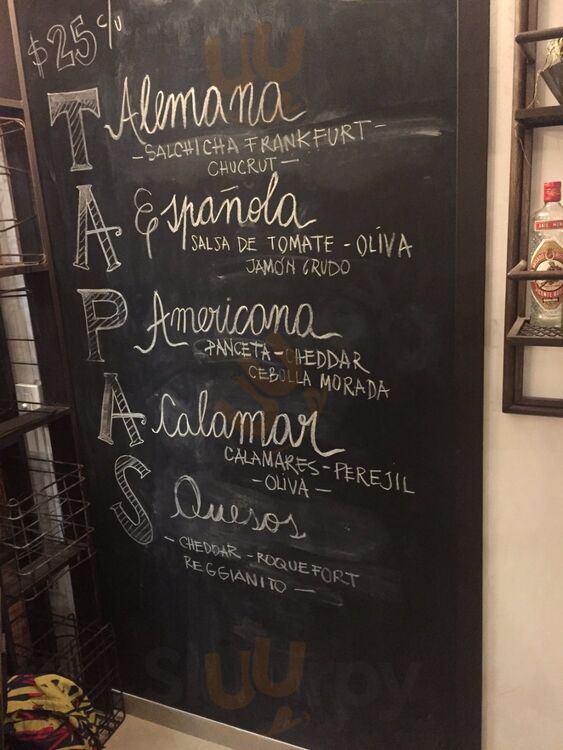 $25 c/u
TAPAS
Alemana
- SALCHICHA FRANKFURT -
CHUCRUT -
Española
SALSA DE TOMATE - OLIVA
JAMÓN CRUDO
Americana
PANCETA - CHEDDAR
CEBOLLA MORADA
Calamar
CALAMARES - PEREJIL
- OLIVA -
Quesos
- CHEDDAR - ROQUEFORT
REGGIANITO -
Sluurpy